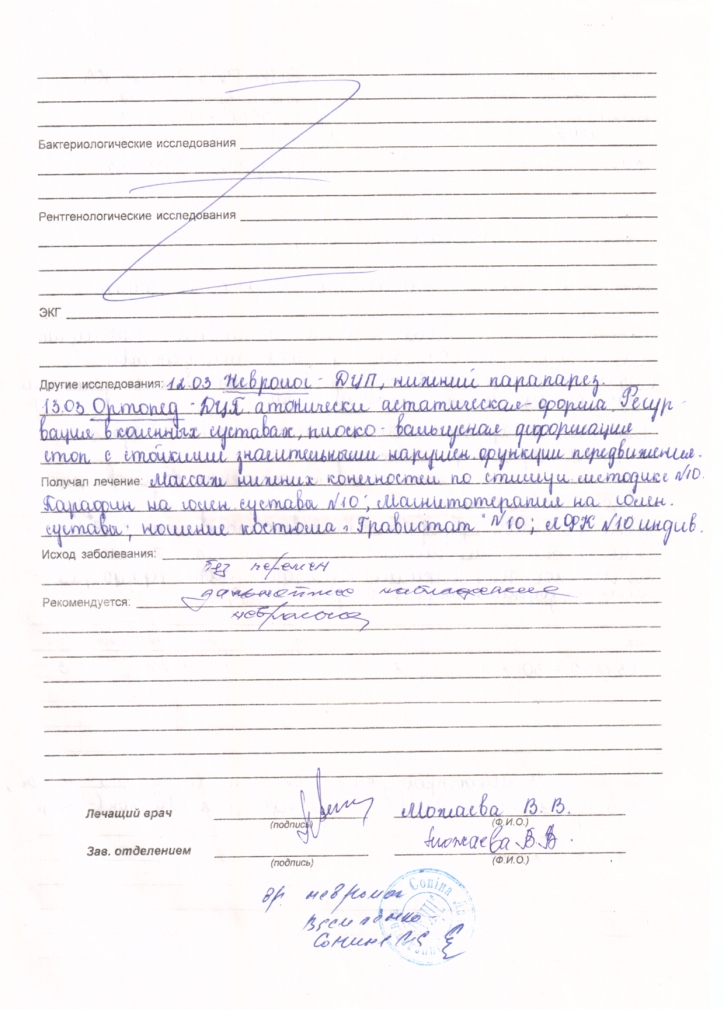 Бактериологические исследования
Рентгенологические исследования
ЭКГ
Другие исследования: 12.03 Невролог - ДЦП, нижний парапарез.
13.03 Ортопед - ДЦП атонически астатическая форма.
в коленных суставах, плоско-вальгусная деформация
стоп с стойкими значительными нарушен. функции передвижения.
Получал лечение: Массаж нижних конечностей по стимул методике №10.
Парафин на голен суставы №10; Магнитотерапия на голен.
суставы; ношение костюма "Гравистат" №10; ЛФК №10 индив.
Исход заболевания:
без перемен
Рекомендуется: дальнейшее наблюдение
невролога
Лечащий врач
(подпись)
Можаева В. В.
(Ф.И.О.)
Зав. отделением
(подпись)
Можаева В.В.
(Ф.И.О.)
вр. невролог
Соніна